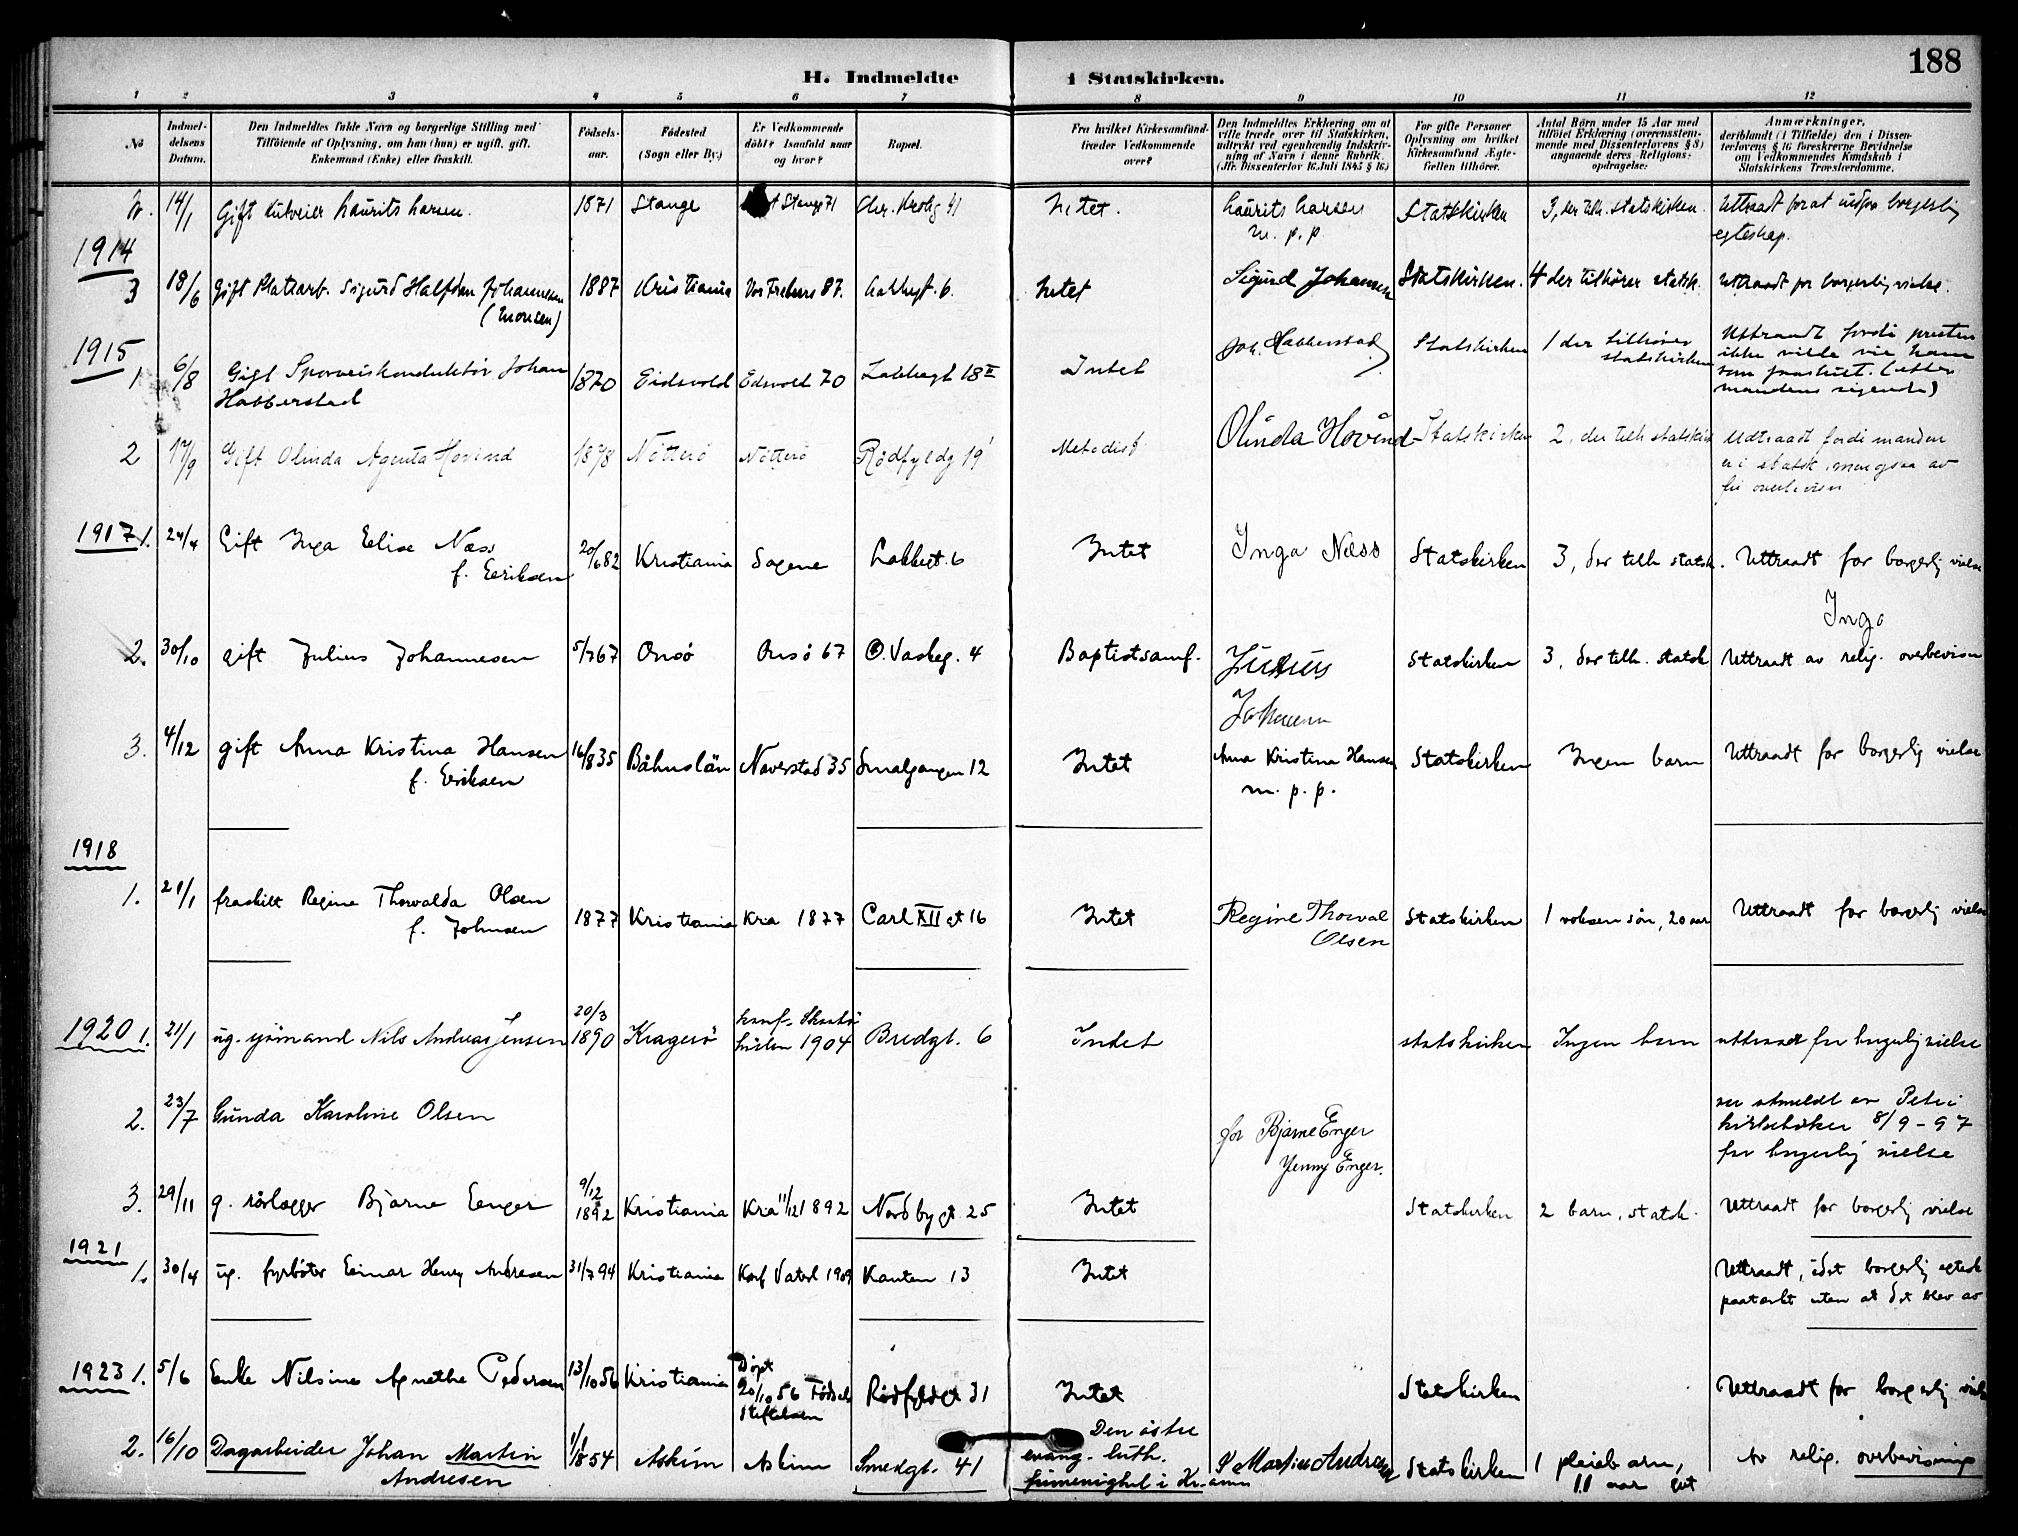 188
H. Indmeldte i Statskirken.
1 2 3 4 5 6 7 8 9 10 11 12
No
Indmel-
delsens
Datum.
Den Indmeldtes fulde Navn og borgerlige Stilling med
Tilföiende af Oplysning, om han (hun) er ugift, gift,
Enkemand (Enke) eller fraskilt.
Födsels-
aar.
Födested
(Sogn eller By.)
Er Vedkommende
döbt? Isaafald naar
og hvor?
Bopæl.
Fra hvilket Kirkesamfund
træder Vedkommende
over?
Den Indmeldtes Erklæring om at
ville træde over til Statskirken,
udtrykt ved egenhændig Indskriv-
ning af Navn i denne Rubrik
(Jfr. Dissenterlov 16 Juli 1845 § 16.)
For gifte Personer
Oplysning om hvilket
Kirkesamfund Ægte-
fællen tilhörer.
Antal Börn under 15 Aar med
tilföiet Erklæring (overensstem-
mende med Dissenterlovens § 8)
angaaende deres Religions-
opdragelse.
Anmærkninger,
deriblandt (i Tilfælde) den i Dissen-
terlovens § 16 foreskrevne Bevidnelse
om Vedkommendes Kundskab i
Statskirkens Troeslærdomme.
14/1 Gift Laurits Larsen. 1871 Stange Stange 71 Intet. Laurits Larsen Statskirken 3, der tilh. statskirken. Uttraadt for at indgaa borgerlig
m. p. p. egteskap.
1914
3 18/6 Gift Platearb. Sigurd Halfdan Johannesen 1887 Kristiania Vor Frelsers 87. Lakkegt. 6. Intet Sigurd Johansen Statskirken. 4 der tilhører statsk. Uttraadt for borgerlig vielse.
(Monsen)
1915
1. 6/8 Gift Sporveiskonduktør Johan 1870 Eidsvold Edsvold 70 Lakkegt 18 II Intet Joh. Habberstad Statskirken 1 der tilhører Uttraadt fordi presten
Habberstad statskirken ikke vilde vie ham
som fraskilt. (efter
mandens sigende)
2 17/9 Gift Olinda Agenta Hovind 1878 Nötterö Nötterö Rødfyldg 19 Metodist Olinda Hovind Statskirken 2, der tilh statskir Udtraadt fordi manden
er i statsk. men ogsaa av
overbevisn
1917 1. 24/4 Gift Inga Elise Næss 20/6 82 Kristiania Sagene Lakkegt. 6 Intet Inga Næss Statskirken 3, der tilh statsk. Uttraadt for borgerlig vielse
f. Eriksen
Inga
2. 30/10 gift Julius Johannesen 5/7 67 Onsö Onsö 67 Ø. Vaskeg. 4 Baptistsamf. Julius Statskirken 3, der tilh. statsk Uttraadt av relig. overbevisn
3. 4/12 gift Anna Kristina Hansen 16/8 35 Båhuslän Naverstad 35 Smalgangen 12 Intet Anna Kristina Hansen Statskirken Ingen barn Uttraadt for borgerlig vielse
f. Eriksen m. p. p.
1918
1. 21/1 fraskilt Regine Thorvalda Olsen 1877 Kristiania Kria 1877 Carl XII gt 16 Intet Regine Thorval Statskirken 1 voksen sön, 20 aar Uttraadt for borgerlig vielse
f. Johnsen Olsen
1920 1. 21/1 ug. sjömand Nils Andreas Jensen 20/3 1890 Kragerö konf. Skaatö 1904 Bredgt. 6 Intet statskirken Ingen barn uttraadt for borgerlig vielse
2. 23/7 Gunda Karoline Olsen for Bjarne Enger er utmeldt av Petri
Jenny Enger. kirkeböker 8/9-97
for borgerlig vielse
3. 29/11 g. rørlægger Bjarne Enger 9/12 1892 Kristiania Kria 11/12 1892 Nordbygt 25 Intet Statskirken 2 barn, statsk. Uttraadt for borgerlig vielse
1921
1. 30/4 ug. fyrböter Einar Henry Andresen 31/7 94 Kristiania Konf Vaterl 1909 Kanten 13 Intet Uttraadt, idet borgerlig egtesk
paatænkt uten at det blev av
1923 1. 5/6 Enke Nilsine Agnethe Pedersen 13/10 56 Kristiania Döpt 20/10 56 Födsels stiftelsen Rødfyldgt 31 Intet Statskirken Uttraadt for borgerlig vielse
2. 16/10 Dagarbeider Johan Martin 1/1 1854 Askim Askim Smedgt. 41 Den östre
Andresen evang. luth. Martin Andresen Statskirken 1 pleiebarn, Av relig. overbevisning
frimenighet i Kr.ania 11 aar